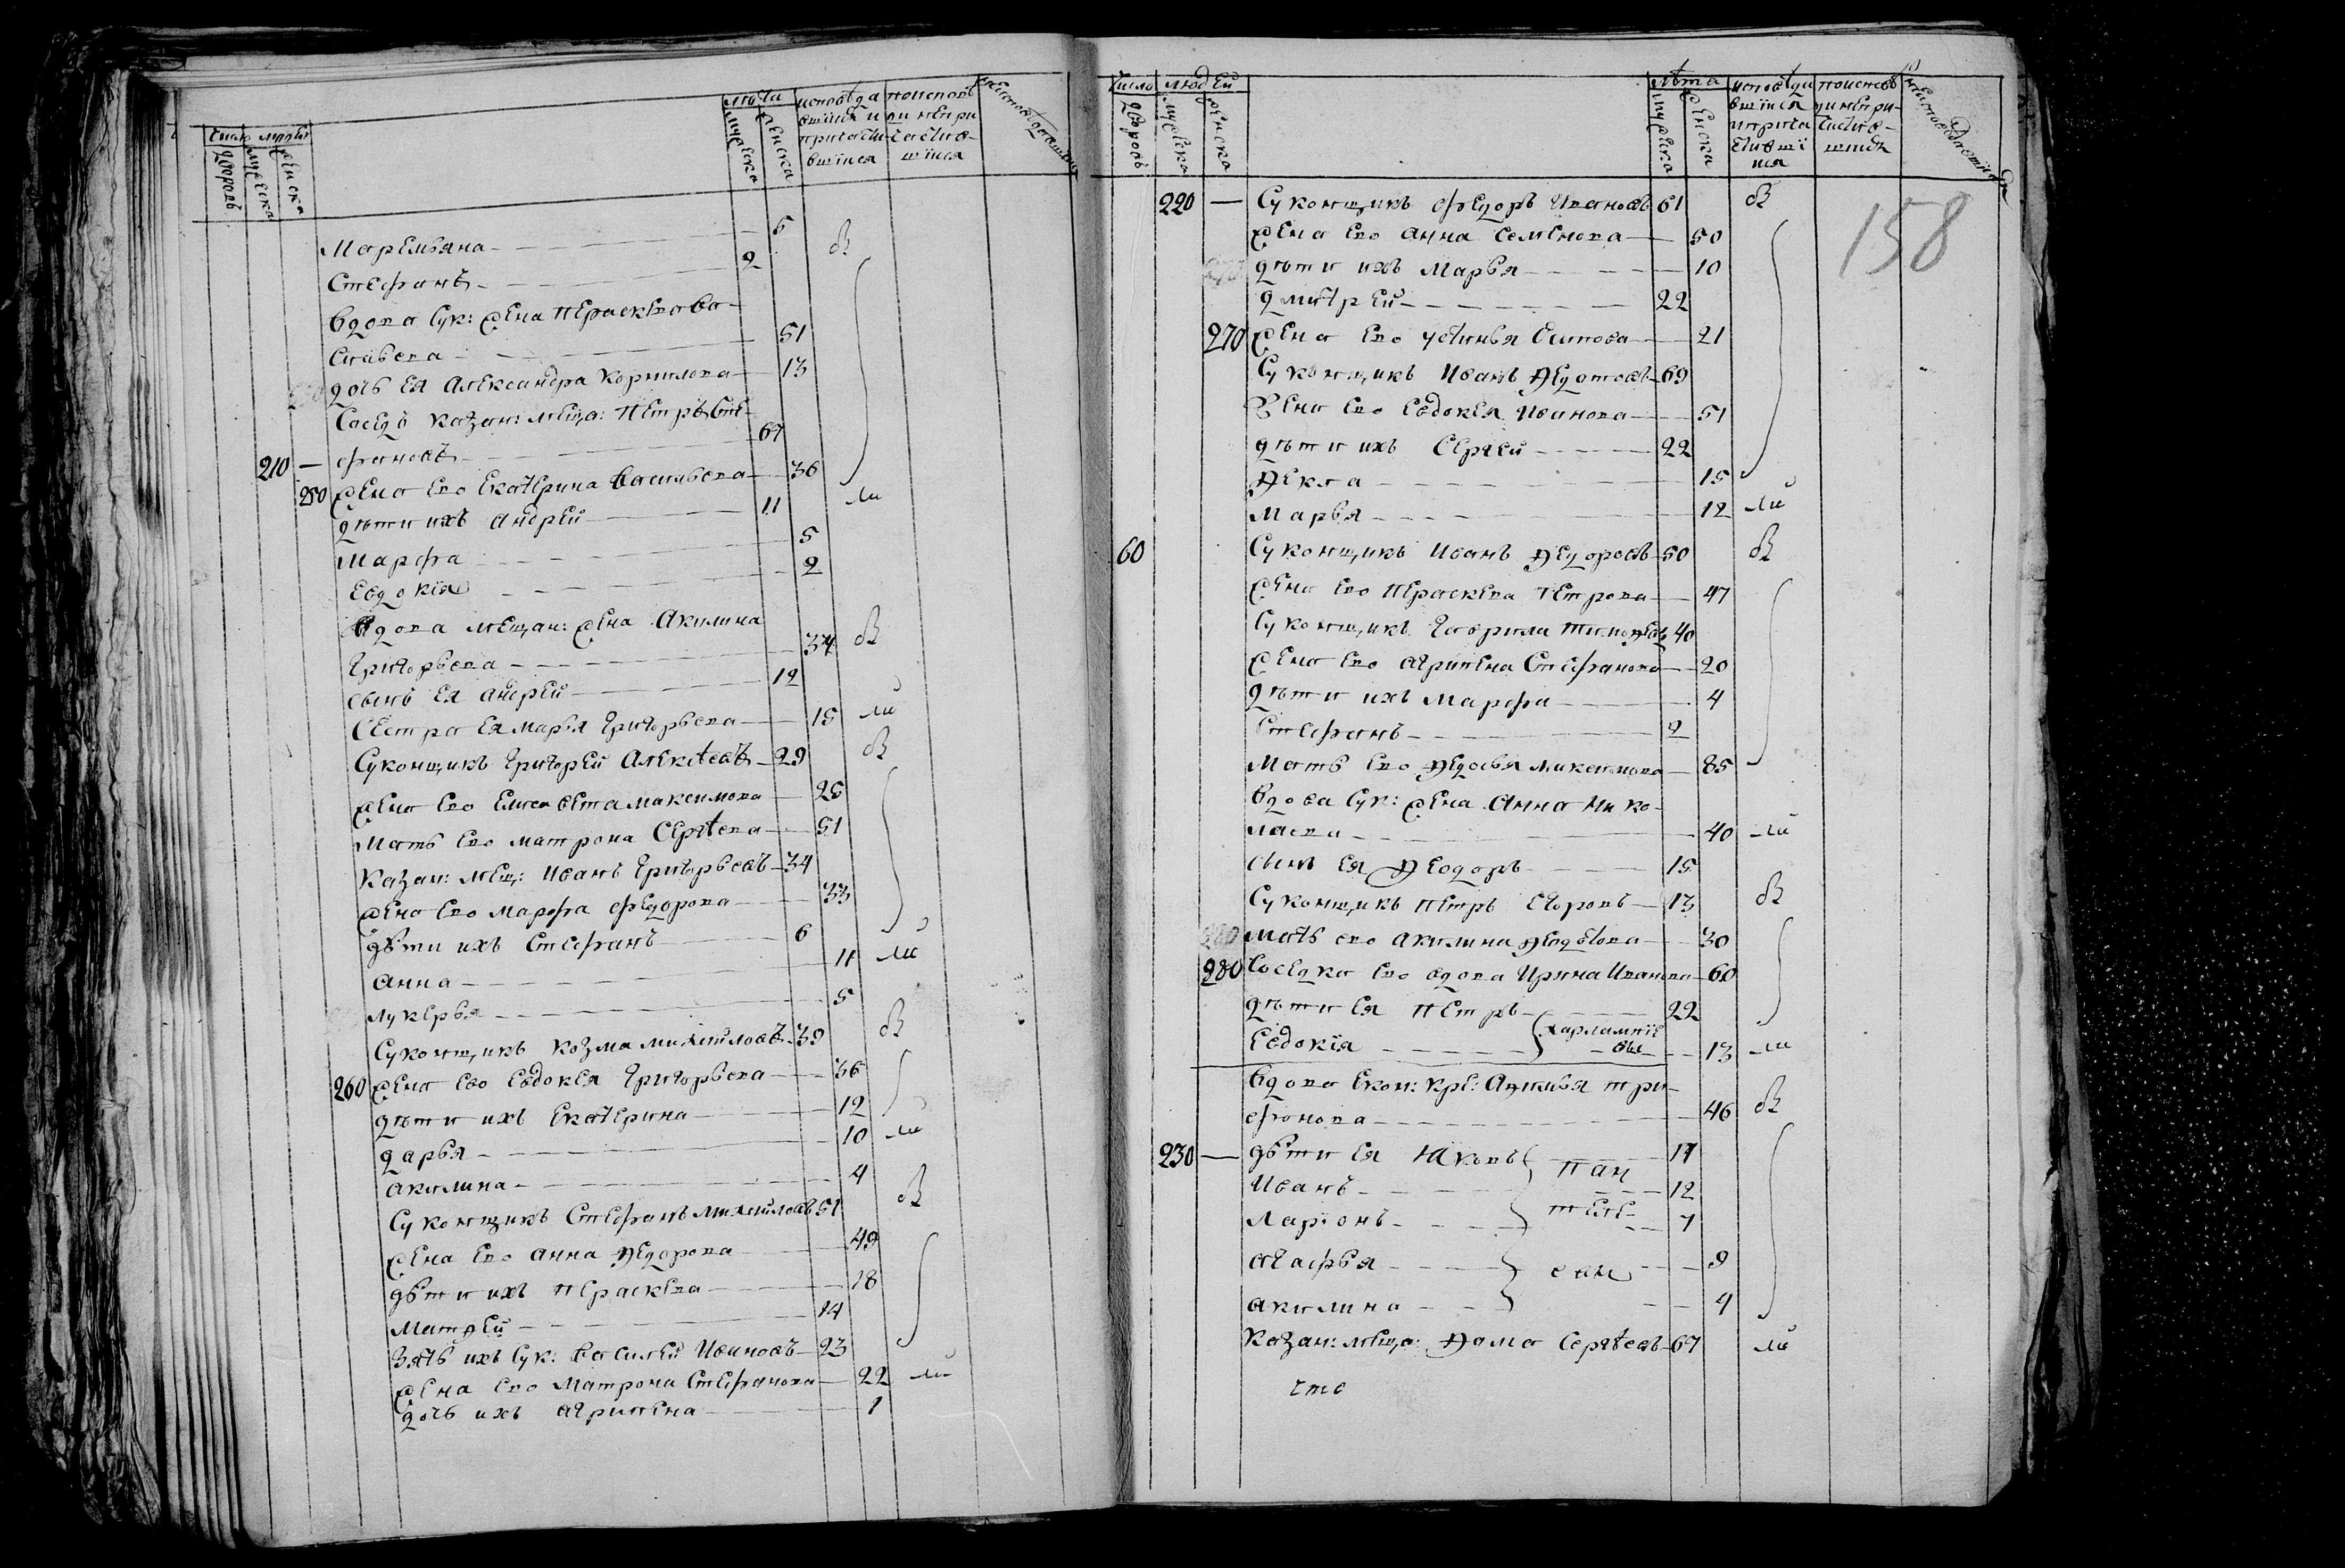 число людей
дворовъ
мужеска
женска
лѣта
мужеска
женска
исповѣда
вшiися и
причасти
вшiися
поисповѣ
ди непри
частив-
шiися
Маремьяна 5
Стефанъ 2
вдова сук: жена Параскева Ва-
сильева 51
дочь ея Александра Корнилова 13
Соседъ казан: меща: Петръ Сте-
210 — фановъ 67
250 жена ево Екатерина Васильева 36
дѣти ихъ Андрей 11 ли
Марфа 5
Евдокiя 2
вдова мещан: жена Акилина
Григорьева 34 в
сынъ ея Андрей 12
Сестра ея Марья Григорьева 15 ли
Суконщикъ Григорей Алексѣевъ 29 в
жена ево Елисавета Максимова 25
Мать ево Матрона Сергѣева 51
Казан: мещ: Иванъ Григорьевъ 34
жена ево Марфа Федорова 33
дѣти ихъ Стефанъ 6
Анна 11 ли
Лукерья 5
Суконщикъ Козма Михаиловъ 39 в
260 жена ево Евдокея Григорьева 36
дѣти ихъ Екатерина 12
Дарья 10 ли
Акилина 4
Суконщикъ Стефанъ Михаиловъ 51 в
жена ево Анна Ѳедорова 49
дѣти ихъ Параскева 18
Матѳей 14
Зять ихъ сук: Василей Ивановъ 23
жена ево Матрона Стефанова 22 ли
дочь ихъ Агрипена 1
число людей
дворовъ
мужеска
женска
лѣта
мужеска
женска
исповѣда
вшiися
и прича
стившi
ися
158
220 — Суконщикъ Федоръ Ивановъ 61 в
жена ево Анна Семенова 50
дѣти ихъ Марья 10
Дмитрей 22
270 жена ево Устинья Осипова 21
Суконщикъ Иванъ Ѳедотовъ 69
Жена ево Евдокея Иванова 51
дѣти ихъ Сергей 22
Ѳекла 15
Марья 12 ли
60 Суконщикъ Иванъ Ѳедоровъ 50 в
жена ево Параскева Петрова 47
Суконщикъ Гаврила Тимоѳеевъ 40
жена ево Агрипена Стефанова 20
дѣти ихъ Марфа 4
Стефанъ 2
Мать ево Ѳедосья Максимова 85
вдова сук: жена Анна Нико-
лаева 40 ли
сынъ ея Ѳеодоръ 15
Суконщикъ Петръ Егоровъ 13 в
Мать ево Акилина Ѳедотова 30
280 Соседка ево вдова Ирина Иванова 60
дѣти ея Петръ 22
Харлампiе
Евдокiя вы 13 ли
вдова екон: кре: Анисья Три-
фонова 46 в
230 — дѣти ея Яковъ Пан 17
Иванъ 12
Ларiонъ теле 7
Агафья евы 9
Акилина 4
Казан: меща: Ѳома Сергѣевъ 67 ли
что